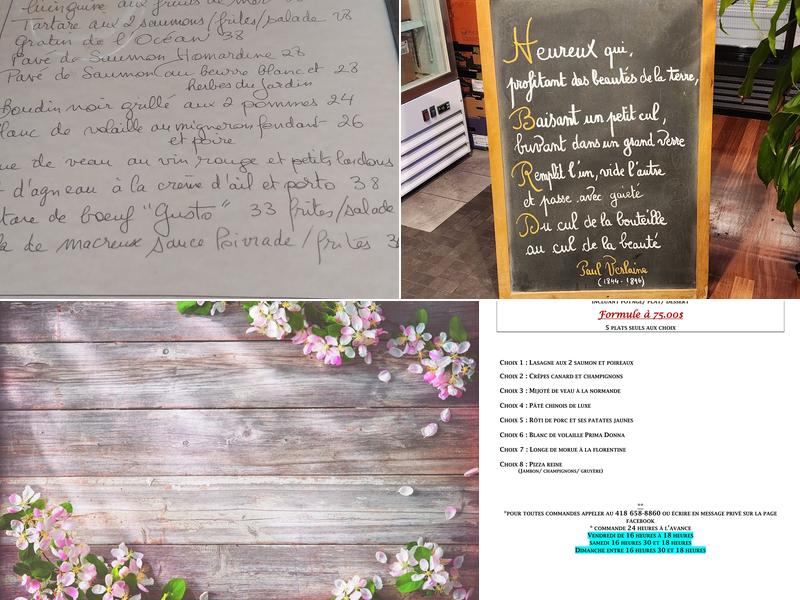 linguine aux fruits de mer 38
Tartare aux 2 saumons/frites/salade 28
Gratin de l'Océan 38
Pavé de Saumon Homardine 28
Pavé de Saumon au beurre blanc et 28
herbes du jardin
Boudin noir grillé aux 2 pommes 24
lanc de volaille au mignon fondant 26
et poire
ue de veau au vin rouge et petits lardons
d'agneau à la crème d'ail et porto 38
tare de boeuf "Gusto" 33 frites/salade
de macreux sauce Poivrade/frites 3
Heureux qui,
profitant des beautés de la terre,
Baisant un petit cul,
buvant dans un grand verre
Remplit l'un, vide l'autre
et passe avec gaieté
Du cul de la bouteille
au cul de la beauté
Paul Verlaine
(1844-1896)
INCLUANT POTAGE/ PLAT/ DESSERT
Formule à 75.00$
5 PLATS SEULS AUX CHOIX
CHOIX 1 : LASAGNE AUX 2 SAUMON ET POIREAUX
CHOIX 2 : CRÊPES CANARD ET CHAMPIGNONS
CHOIX 3 : MIJOTÉ DE VEAU À LA NORMANDE
CHOIX 4 : PÂTÉ CHINOIS DE LUXE
CHOIX 5 : RÔTI DE PORC ET SES PATATES JAUNES
CHOIX 6 : BLANC DE VOLAILLE PRIMA DONNA
CHOIX 7 : LONGE DE MORUE À LA FLORENTINE
CHOIX 8 : PIZZA REINE
(JAMBON/ CHAMPIGNONS/ GRUYÈRE)
**
*POUR TOUTES COMMANDES APPELER AU 418 658-8860 OU ÉCRIRE EN MESSAGE PRIVÉ SUR LA PAGE
FACEBOOK
* COMMANDE 24 HEURES À L'AVANCE
VENDREDI DE 16 HEURES À 18 HEURES
SAMEDI 16 HEURES 30 ET 18 HEURES
DIMANCHE ENTRE 16 HEURES 30 ET 18 HEURES